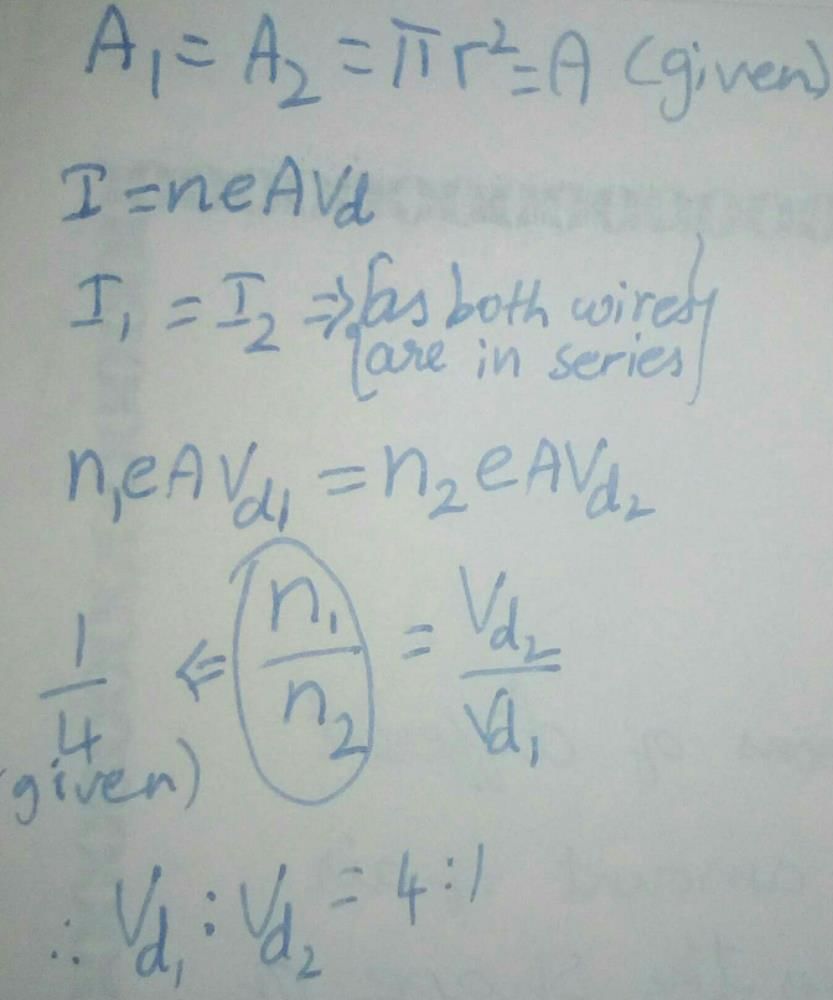 A₁ = A₂ = πr² = A (given)
I = neAVd
I₁ = I₂ ⇒ {as both wires
are in series}
n₁eAVd₁ = n₂eAVd₂
1/4 ⇐ n₁/n₂ = Vd₂/Vd₁
(given)
∴ Vd₁ : Vd₂ = 4:1